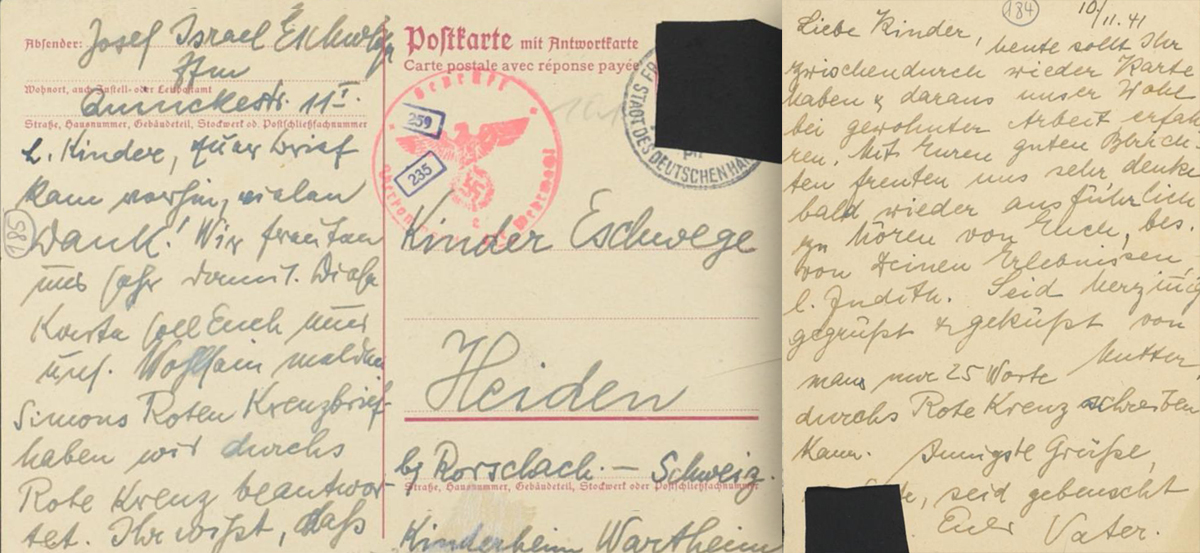 Absender: Josef Israel Eschwege
Ffm
Wohnort, auch Zustell- oder Leitpostamt
Quinckestr. 11 I.
Straße, Hausnummer, Gebäudeteil, Stockwerk od. Postschließfachnummer
L. Kinder, Euer Brief
kam vorhin, vielen
185
Dank! Wir freuten
uns sehr damit. Diese
Karte soll Euch nur
uns. Wohlsein melden
Simons Roten Kreuzbrief
haben wir durchs
Rote Kreuz beantwor-
tet. Ihr wißt, daß
Postkarte mit Antwortkarte
Carte postale avec réponse payée
Geprüft
259
235
STADT DES DEUTSCHEN HA
Kinder Eschwege
Heiden
bg Rorschach. — Schweiz.
Straße, Hausnummer, Gebäudeteil, Stockwerk oder Postschließfachnummer
Kinderheim Wartheim
184
10/11.41
Liebe Kinder, heute sollt Ihr
zwischendurch wieder Karte
haben & daraus unser Wohl
bei gewohnter Arbeit erfah
ren. Mit Euren guten Berich-
ten freuten uns sehr denke
bald wieder ausführlich
zu hören von Euch, bes.
von Deinen Erlebnissen,
l. Judith. Seid herzinnig
gegrüßt & geküßt von
Mutter
man nur 25 Worte
durchs Rote Kreuz schreiben
kann. Innigste Grüße,
seid gebenscht
Euer Vater.